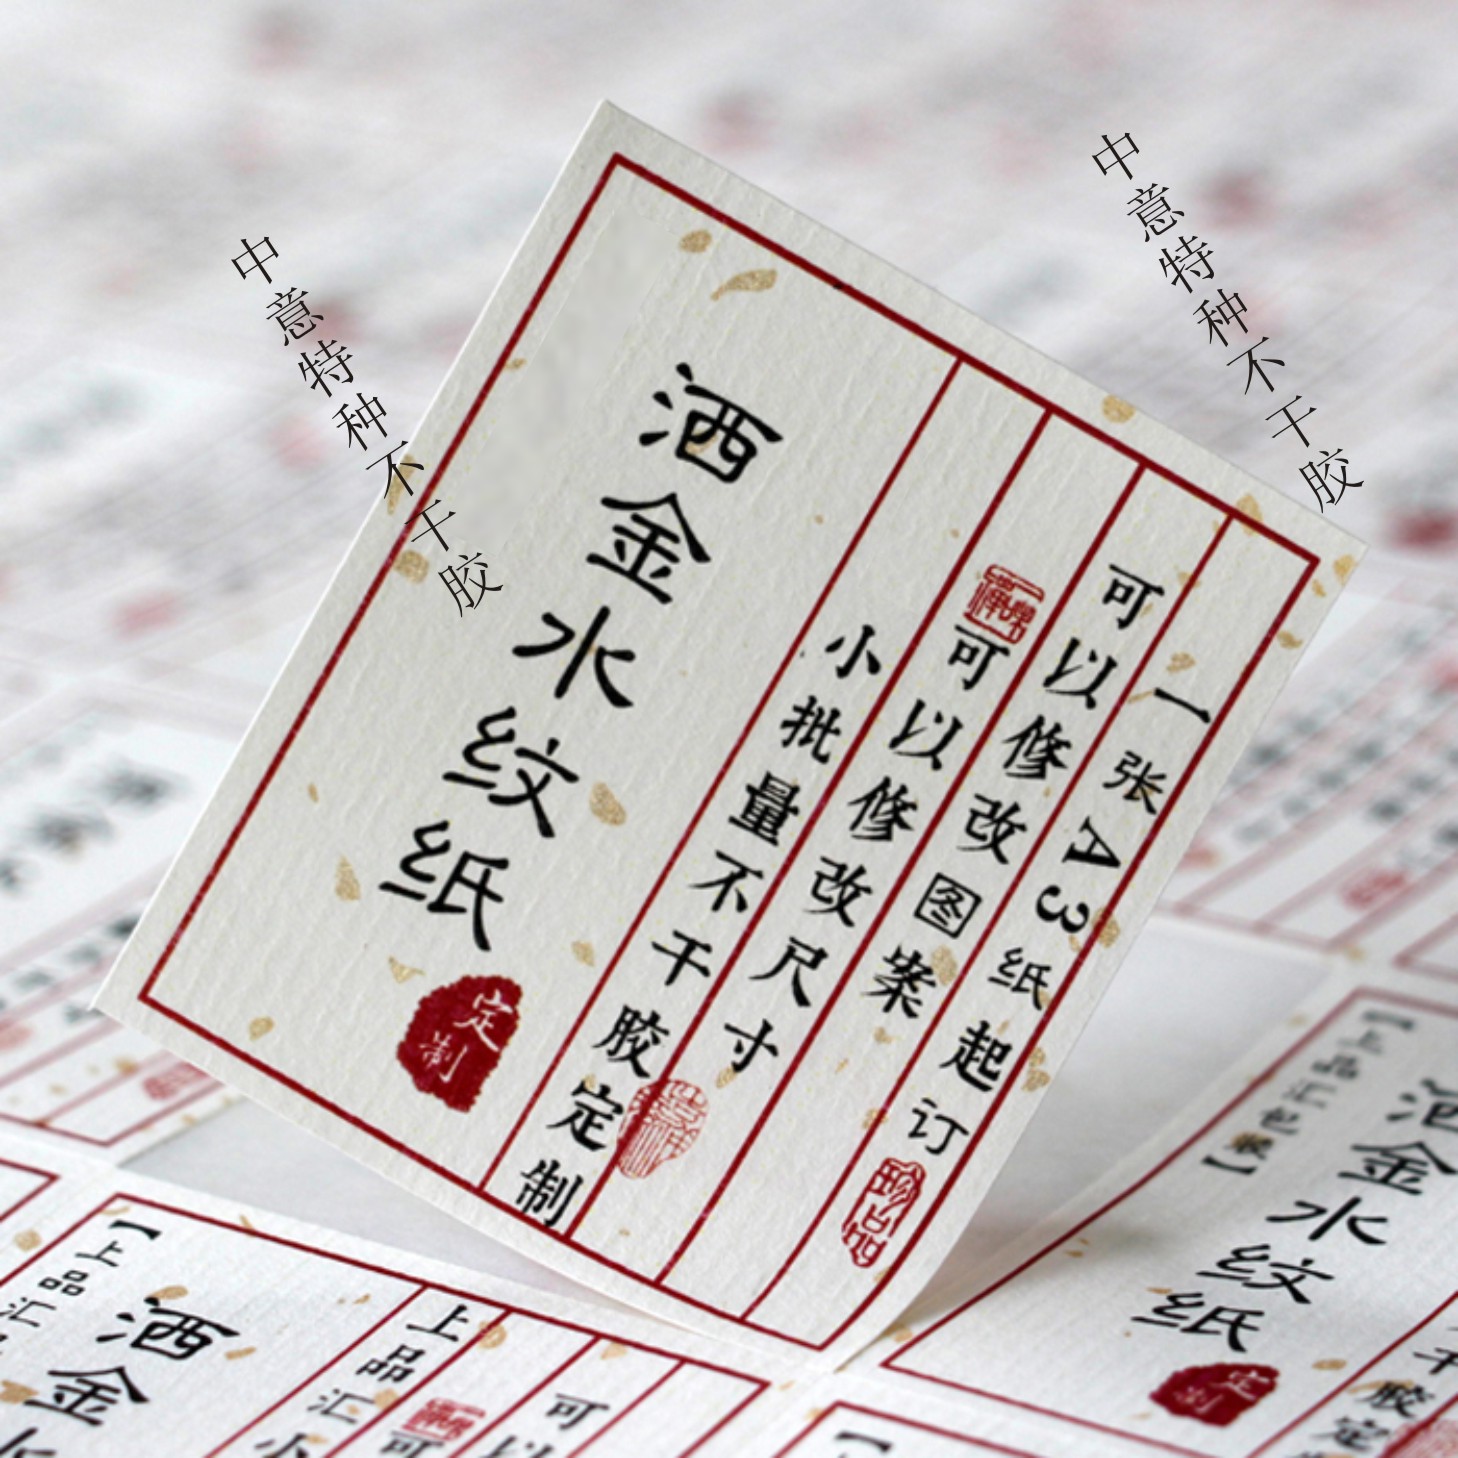 中意特种不干胶
中意特种不干胶
一张A3纸起订
珍品
可以修改图案
可以修改尺寸
小批量不干胶定制
洒金水纹纸
定制
【上品汇包装】
洒金水纹纸
定制
干胶定
【上品汇
洒金水
上品汇小
可
可以